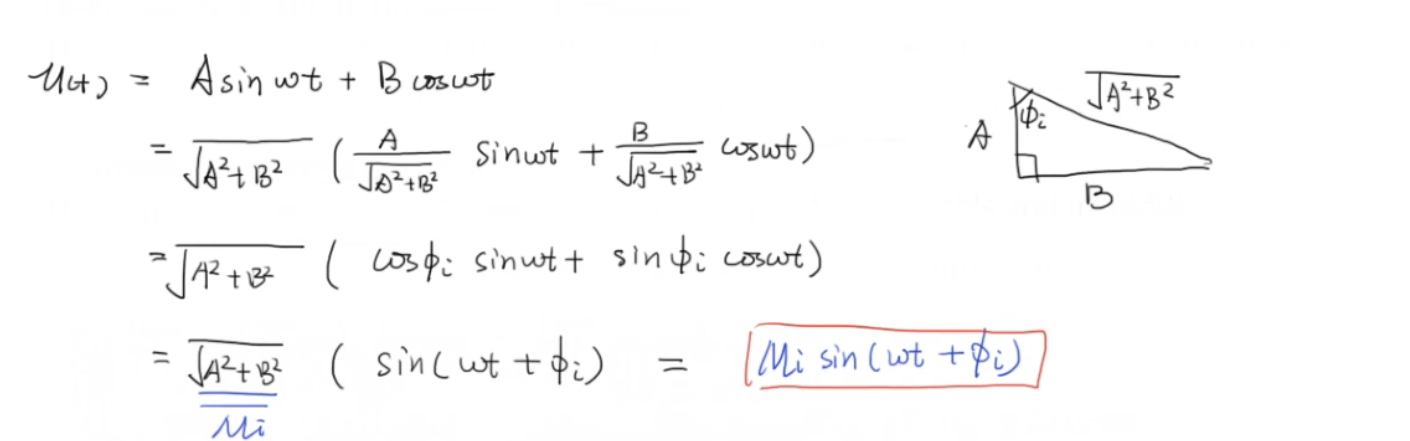 u(t) = A sin ωt + B cos ωt
= √(A²+B²) ( A/√(A²+B²) sin ωt + B/√(A²+B²) cos ωt)
= √(A²+B²) ( cosϕi sin ωt + sin ϕi cos ωt)
= √(A²+B²) ( sin(ωt + ϕi) = Mi sin(ωt + ϕi)
Mi
√(A²+B²)
A
ϕi
B